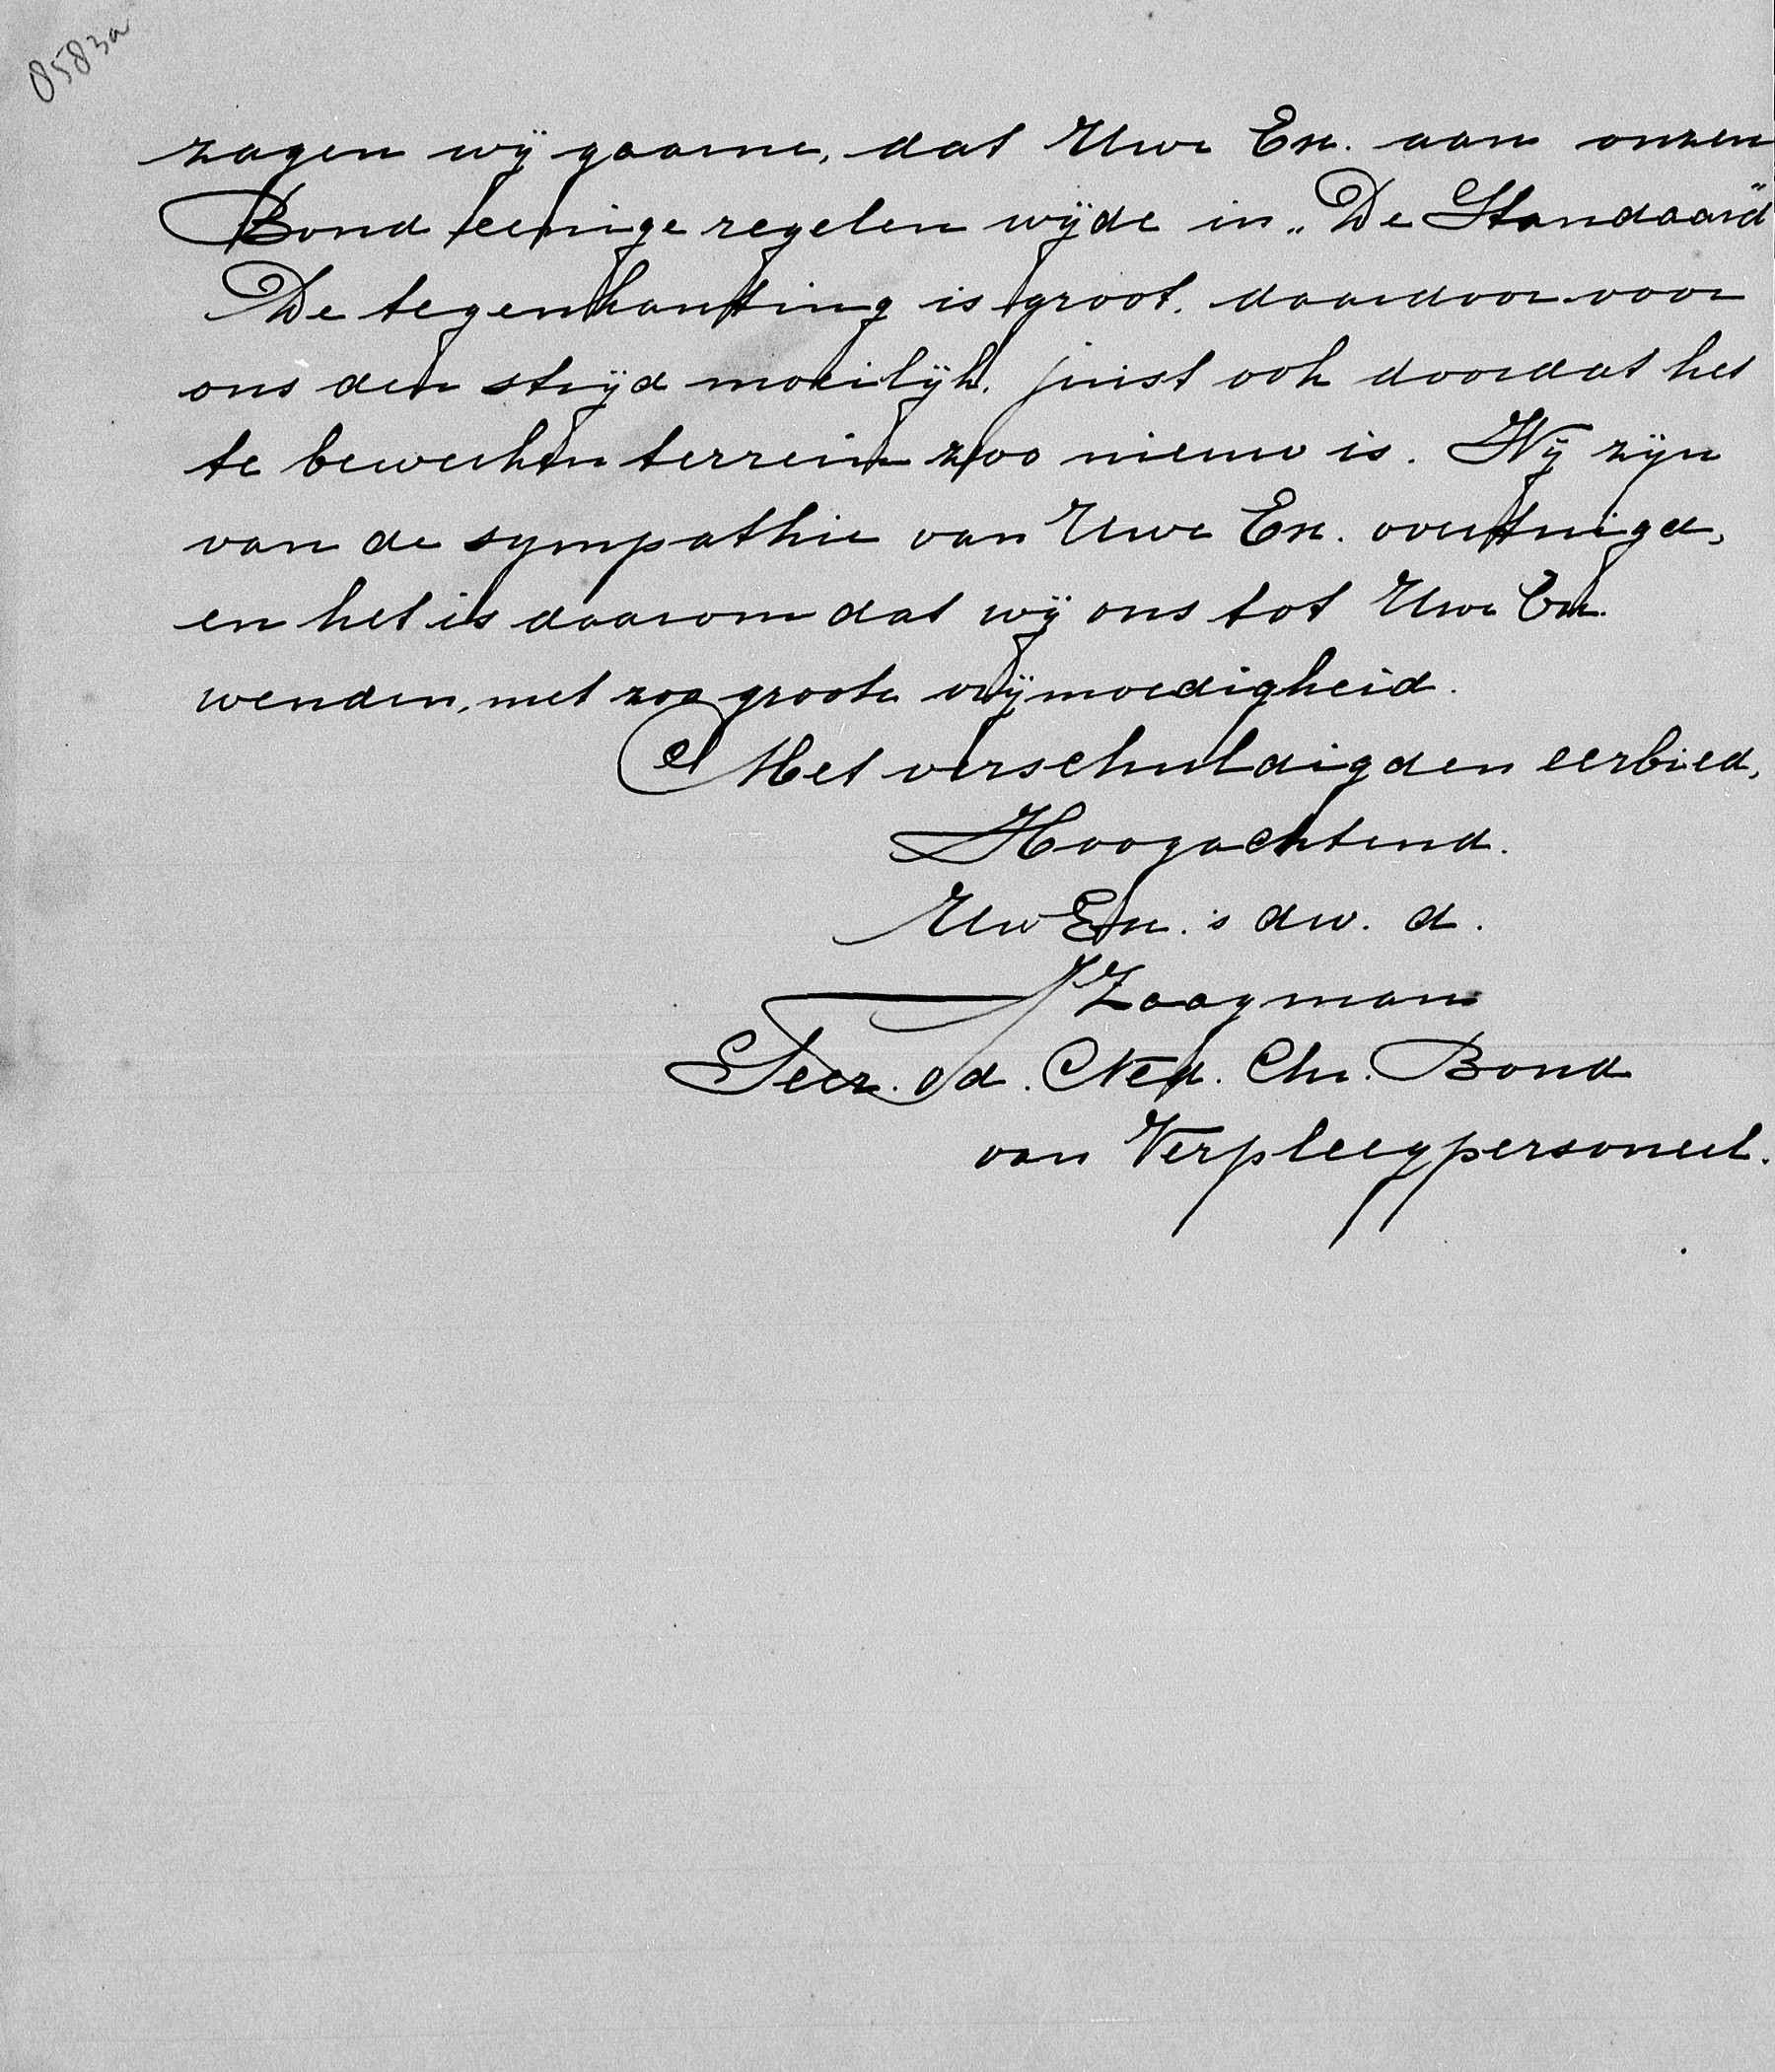 8583a
zagen wij gaarne, dat Uwe Ex. aan onzen
Bond eenige regelen wijde in „De Standaard"
De tegenkanting is groot, daardoor voor
ons den strijd moeilijk, juist ook doordat het
te bewerken terrein zoo nieuw is. Wij zijn
van de sympathie van Uwe Ex. overtuigd,
en het is daarom dat wij ons tot Uwe Ex.
wenden, met zoo groote vrijmoedigheid.
Met verschuldigden eerbied,
Hoogachtend.
Uw Ex.'s dw. d.
J Zaagman
Secr. v d. Ned. Chr. Bond
van Verpleegpersoneel.